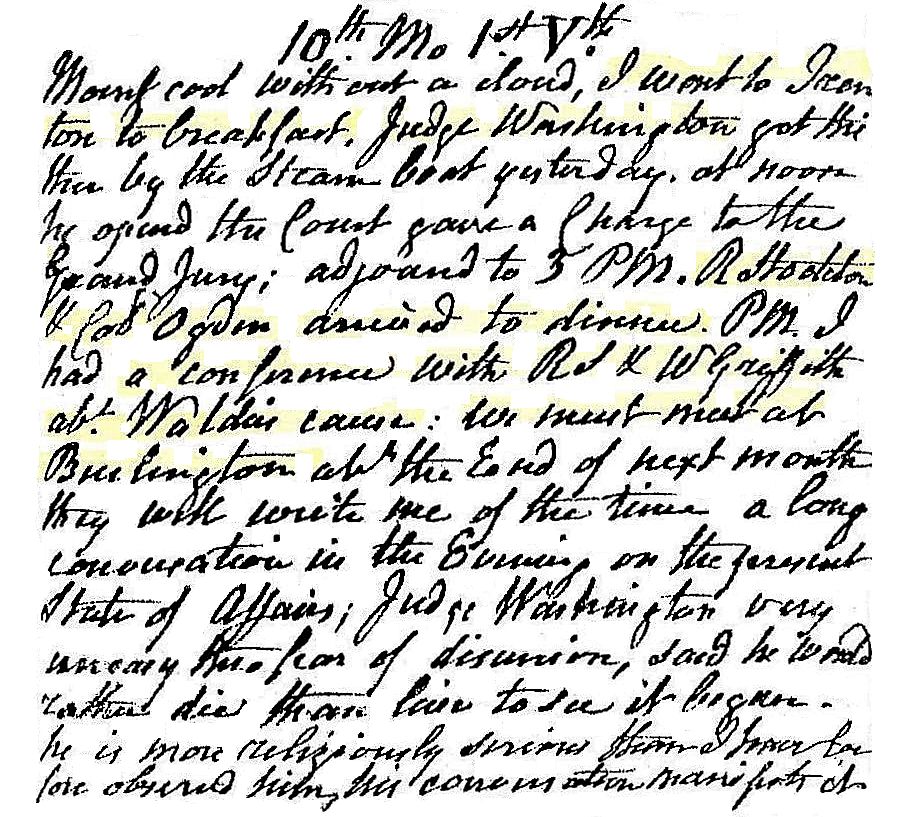 10th Mo 1st Vth
Morng cool without a cloud, I went to Tren
ton to breakfast. Judge Washington got thi
ther by the Steam boat yesterday. at noon
he opend the Court gave a Charge to the
Grand Jury; adjournd to 5 PM. R Stockton
& Colo Ogden arrived to dinner. P.M. I
had a conference with RS & W Griffith
abt. Waldies cause: we must meet at
Burlington abt the End of next month
they will write me of the time a long
conversation in the Evening on the present
State of Affairs; Judge Washington very
uneasy thro fear of disunion, said he would
rather die than live to see it began.
he is more religiously serious than I have be
fore observed him, his conversation manifests it